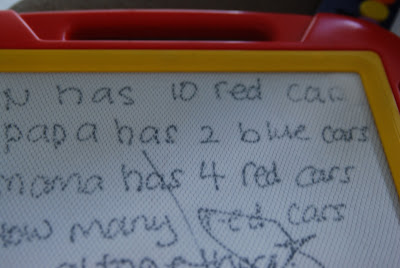 N has 10 red cars
papa has 2 blue cars
mama has 4 red cars
How many red cars
altogether?